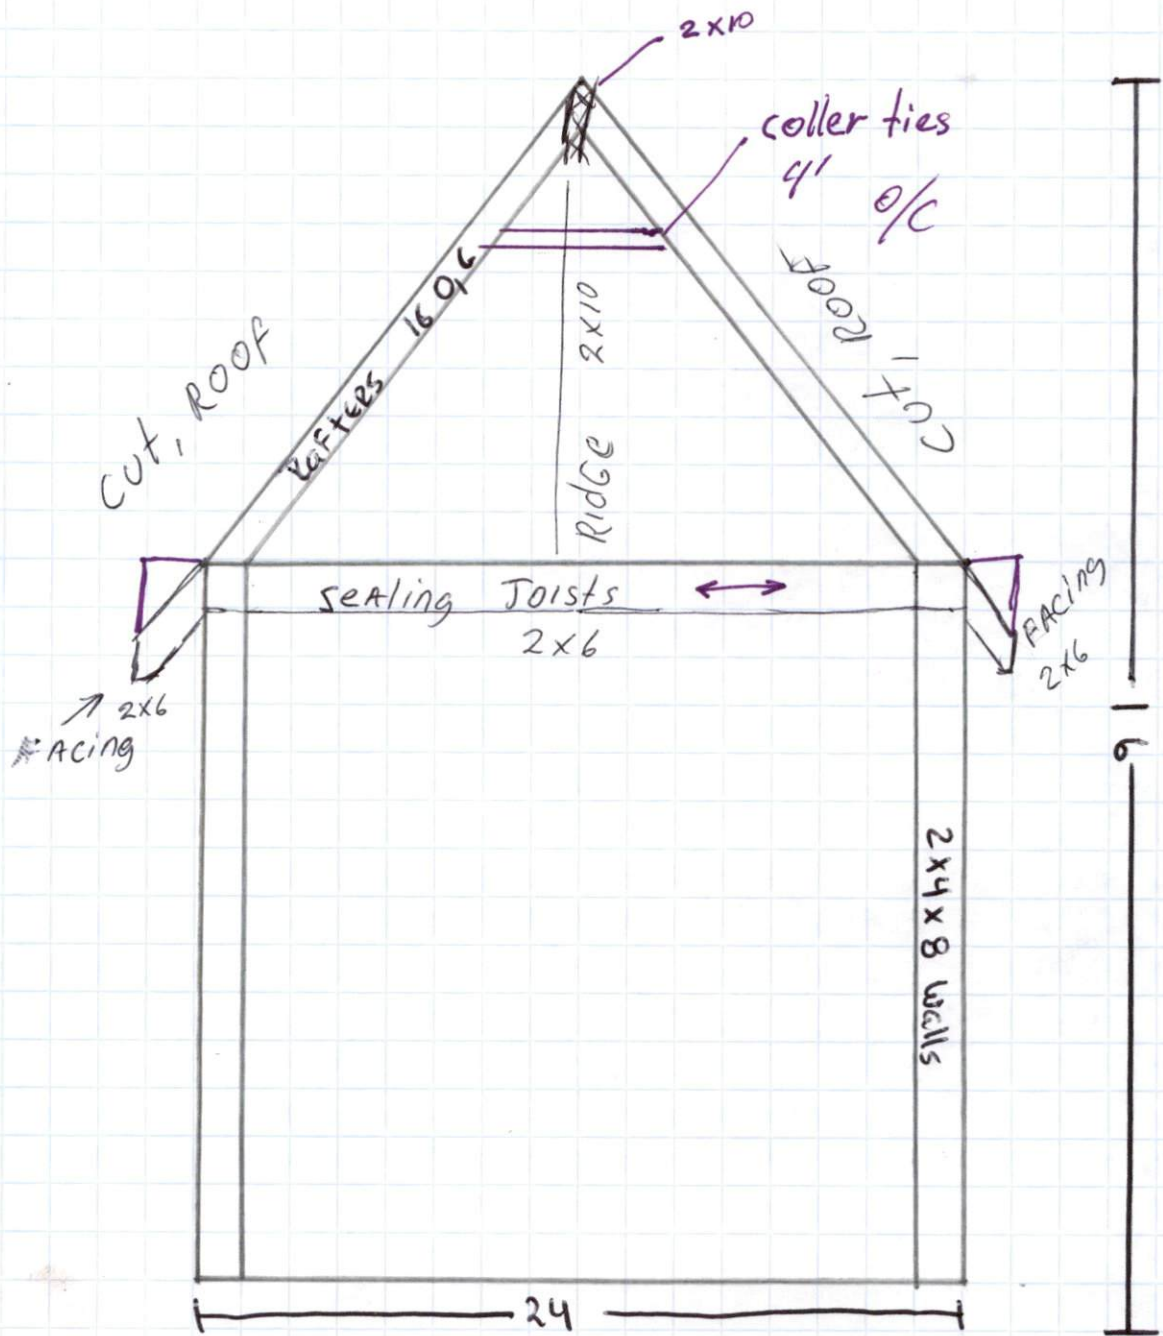 2x10
coller ties
4'
O/C
CUT, ROOF
CUT, ROOF
RafTERS 16 O,C
RIDGE 2x10
SeALing JOISTS
2x6
FACING
2x6
2x6
FACing
2x4x8 walls
16
24